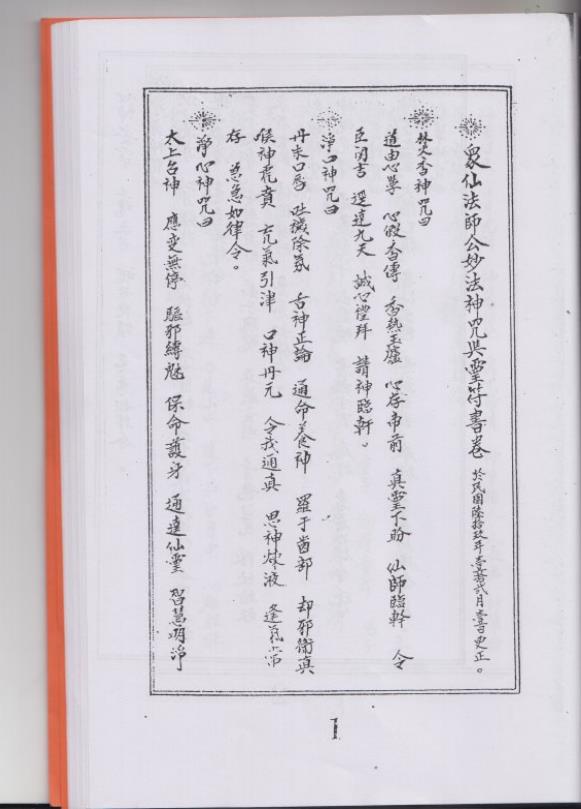 眾仙法師公妙法神咒與靈符書卷 於民國陸拾玖年壹拾貳月壹日更正。
焚香神咒曰
道由心學 心假香傳 香熱玉爐 心存帝前 真靈下盼 仙師臨軒 令
臣関告 逕達九天 誠心禮拜 請神臨軒。
淨口神咒曰
丹朱口唇 吐穢除氛 舌神正論 通命養神 羅于齒部 却邪衛真
喉神虎賁 炁氣引津 口神丹元 令我通真 思神煉液 逢氣常
存 急急如律令。
淨心神咒曰
太上台神 應变無停 驅邪縛魅 保命護身 通達仙靈 智慧明淨
1